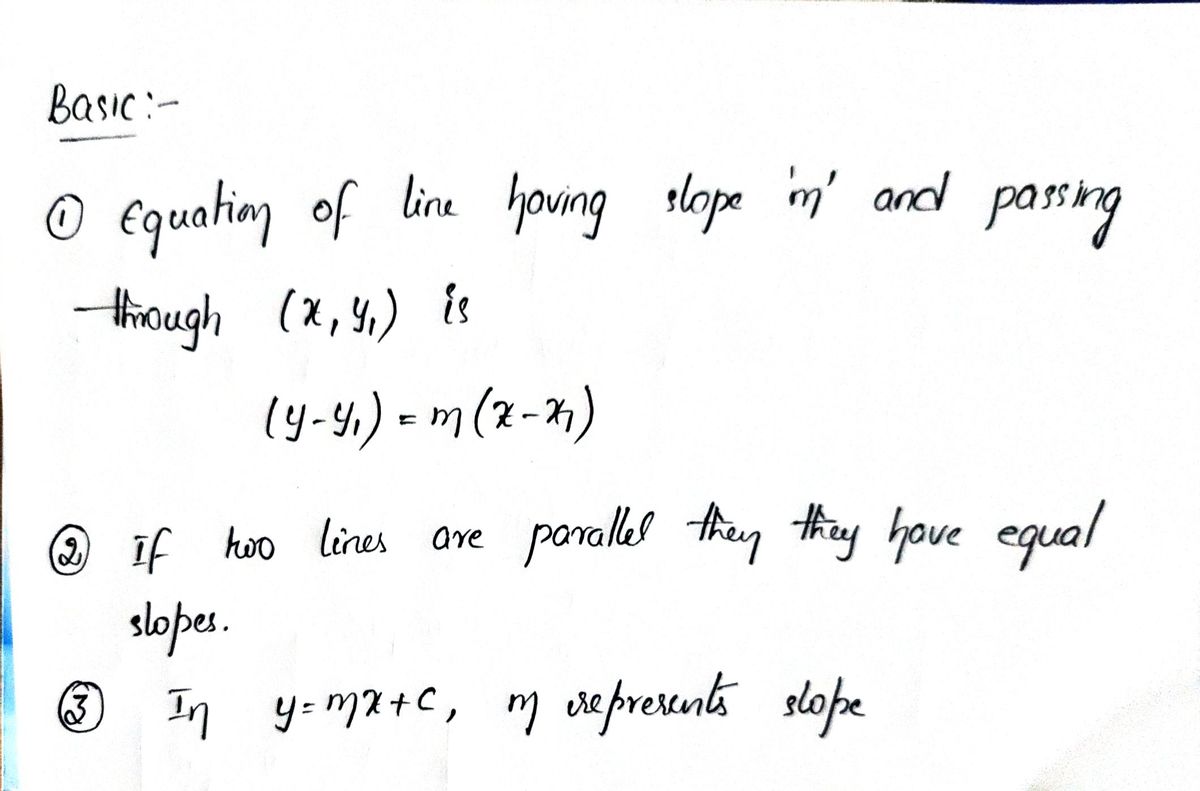 Basic:-
① Equation of line having slope 'm' and passing
through (x, y₁) is
(y-y₁) = m(x-x₁)
② If two lines are parallel then they have equal
slopes.
③ In y=mx+c, m represents slope